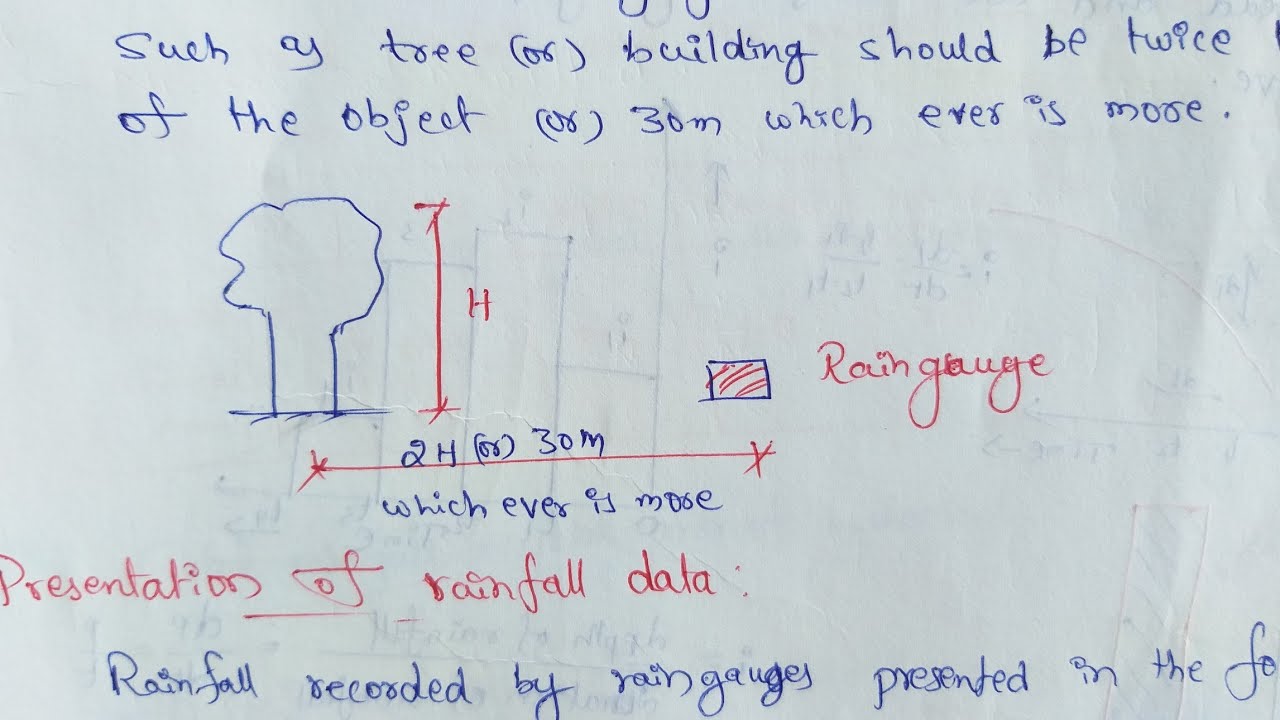 Such as tree (or) building should be twice
of the object (or) 30m which ever is more.
H
Raingauge
2H (or) 30m
which ever is more
Presentation of rainfall data:
Rainfall recorded by raingauges presented in the